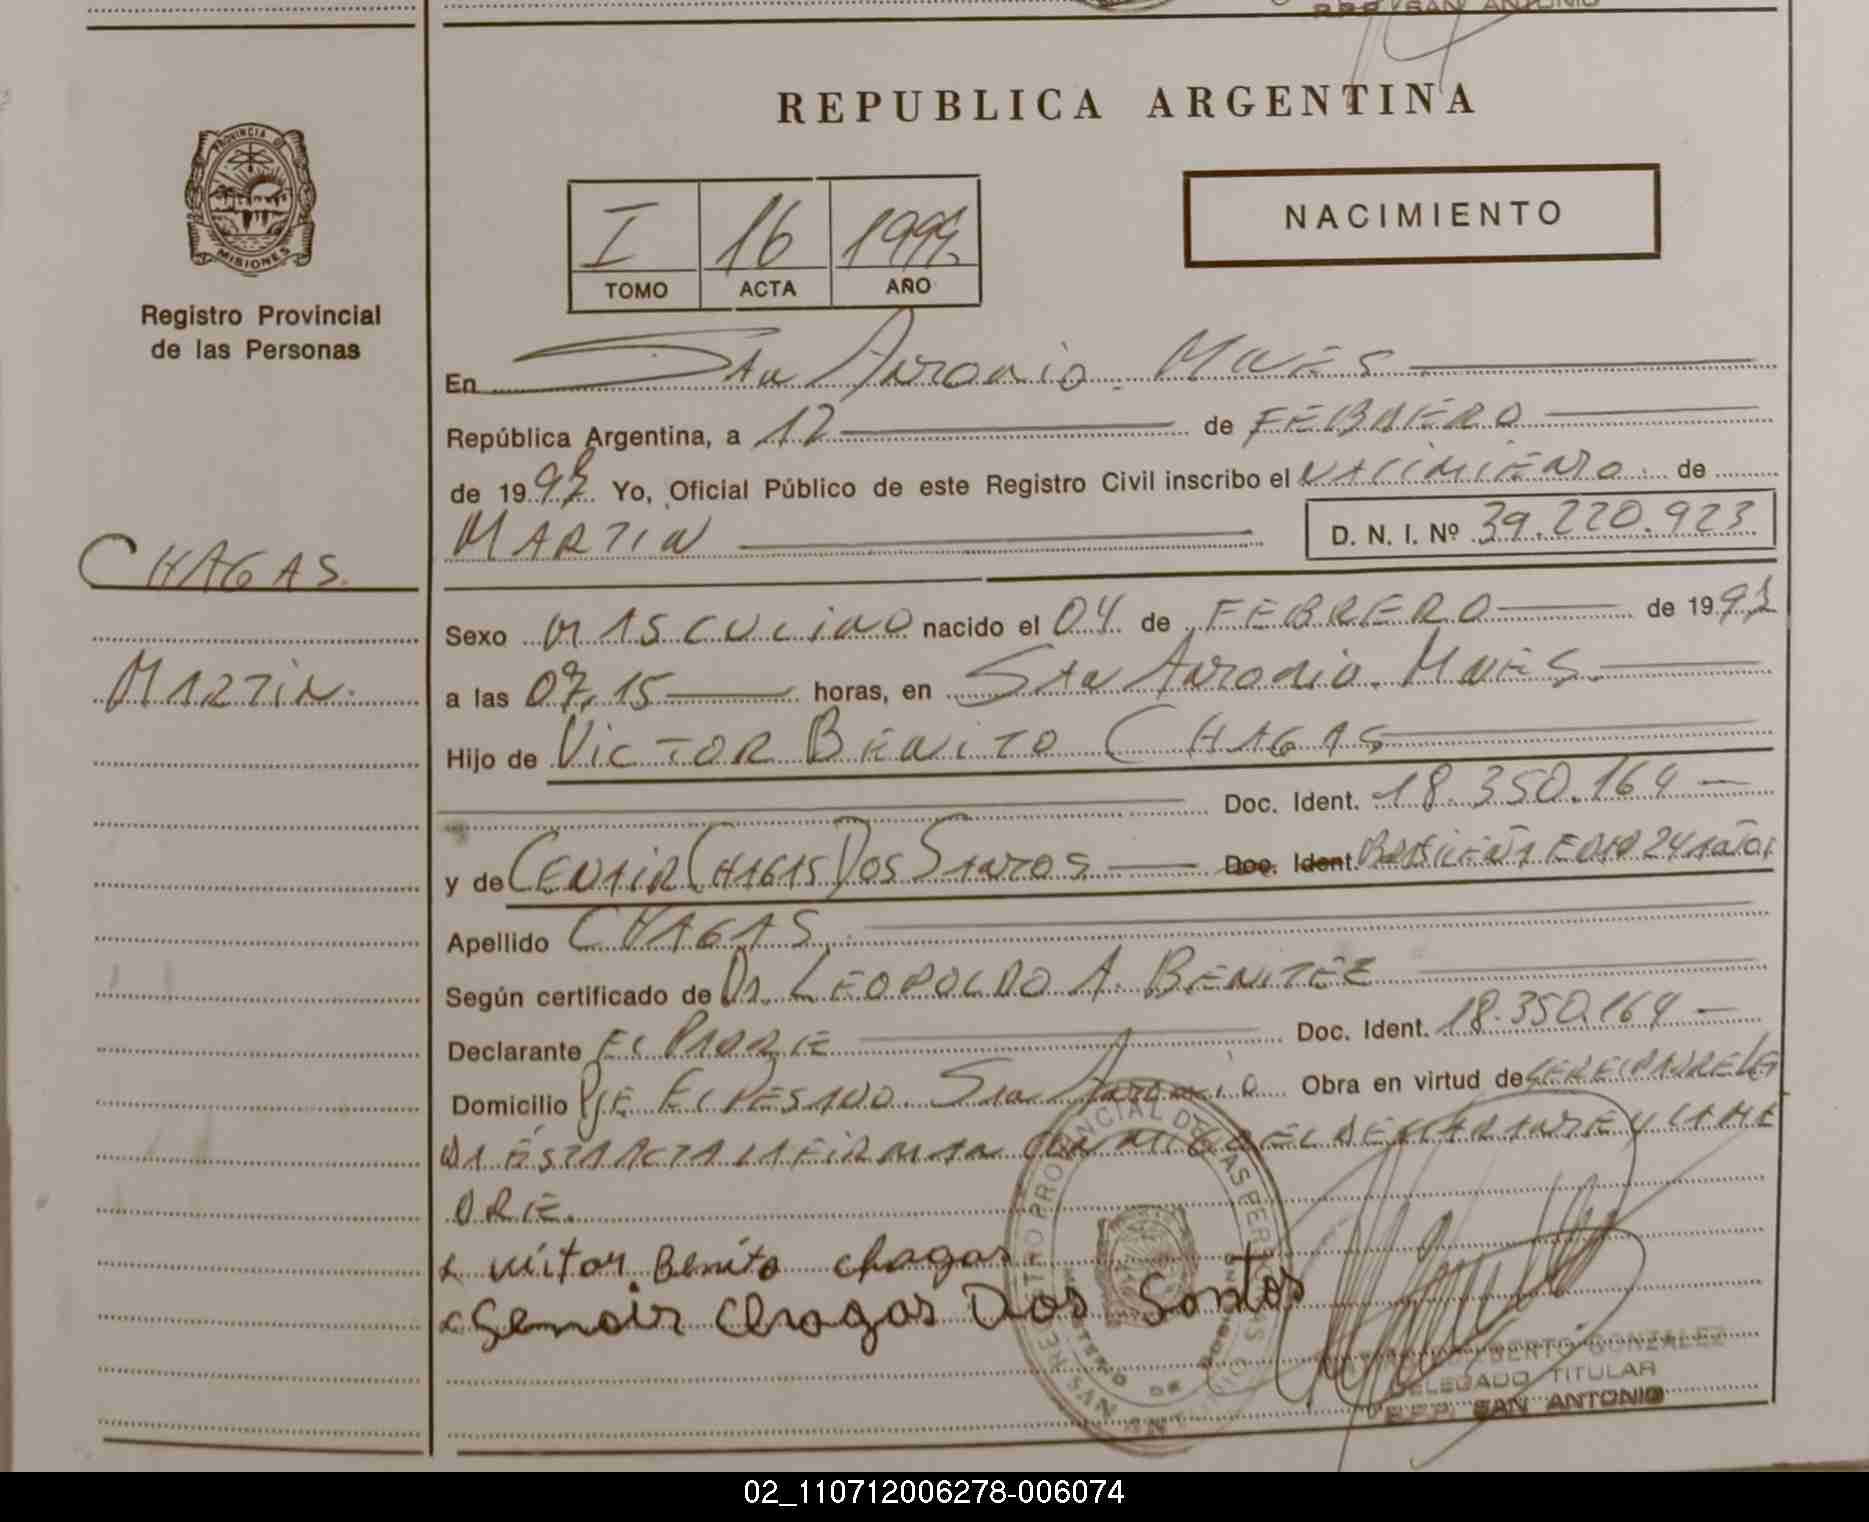 R.P.P. SAN ANTONIO
REPUBLICA ARGENTINA
PROVINCIA DE
MISIONES
Registro Provincial
de las Personas
NACIMIENTO
I 16
TOMO ACTA AÑO
En San Antonio. Mnes
República Argentina, a 12 de FEBRERO
de 19 Yo, Oficial Público de este Registro Civil inscribo el NACIMIENTO. de
MARTIN D. N. I. Nº 39.220.923
CHAGAS.
Sexo MASCULINO nacido el 04 de FEBRERO de 19
MARTIN.
a las 07,15 horas, en San Antonio. Mnes.
Hijo de VICTOR BENITO CHAGAS
Doc. Ident. 18.350.164
y de CENAIR CHAGAS DOS SANTOS Doc. Ident. BRASILEÑA EDAD 24 años
Apellido CHAGAS.
Según certificado de Dr. LEOPOLDO A. BENITEZ
Declarante EL PADRE Doc. Ident. 18.350.164
Domicilio Pje EL PESADO. San Antonio Obra en virtud de
DA ESTA ACTA LA FIRMAN CONMIGO EL DECLARANTE Y LA MA
DRE.
x victor Benito chagas
x Genair Chagas Dos Santos
REGISTRO PROVINCIAL DE LAS PERSONAS
GONZALEZ
DELEGADO TITULAR
R.P.P. SAN ANTONIO
02_110712006278-006074